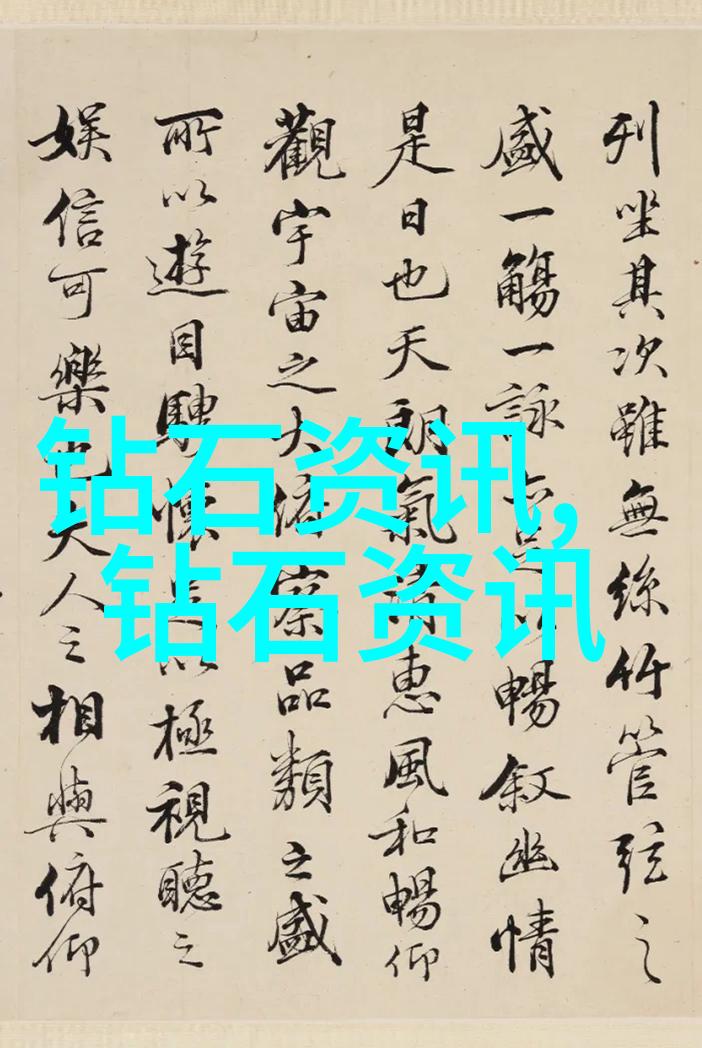 列坐其次雖無絲竹管弦之
盛一觴一詠亦足以暢叙幽情
是日也天朗氣清惠風和暢仰
觀宇宙之大俯察品類之盛
所以遊目騁懷足以極視聽之
娛信可樂也夫人之相與俯仰
钻石资讯,
钻石资讯